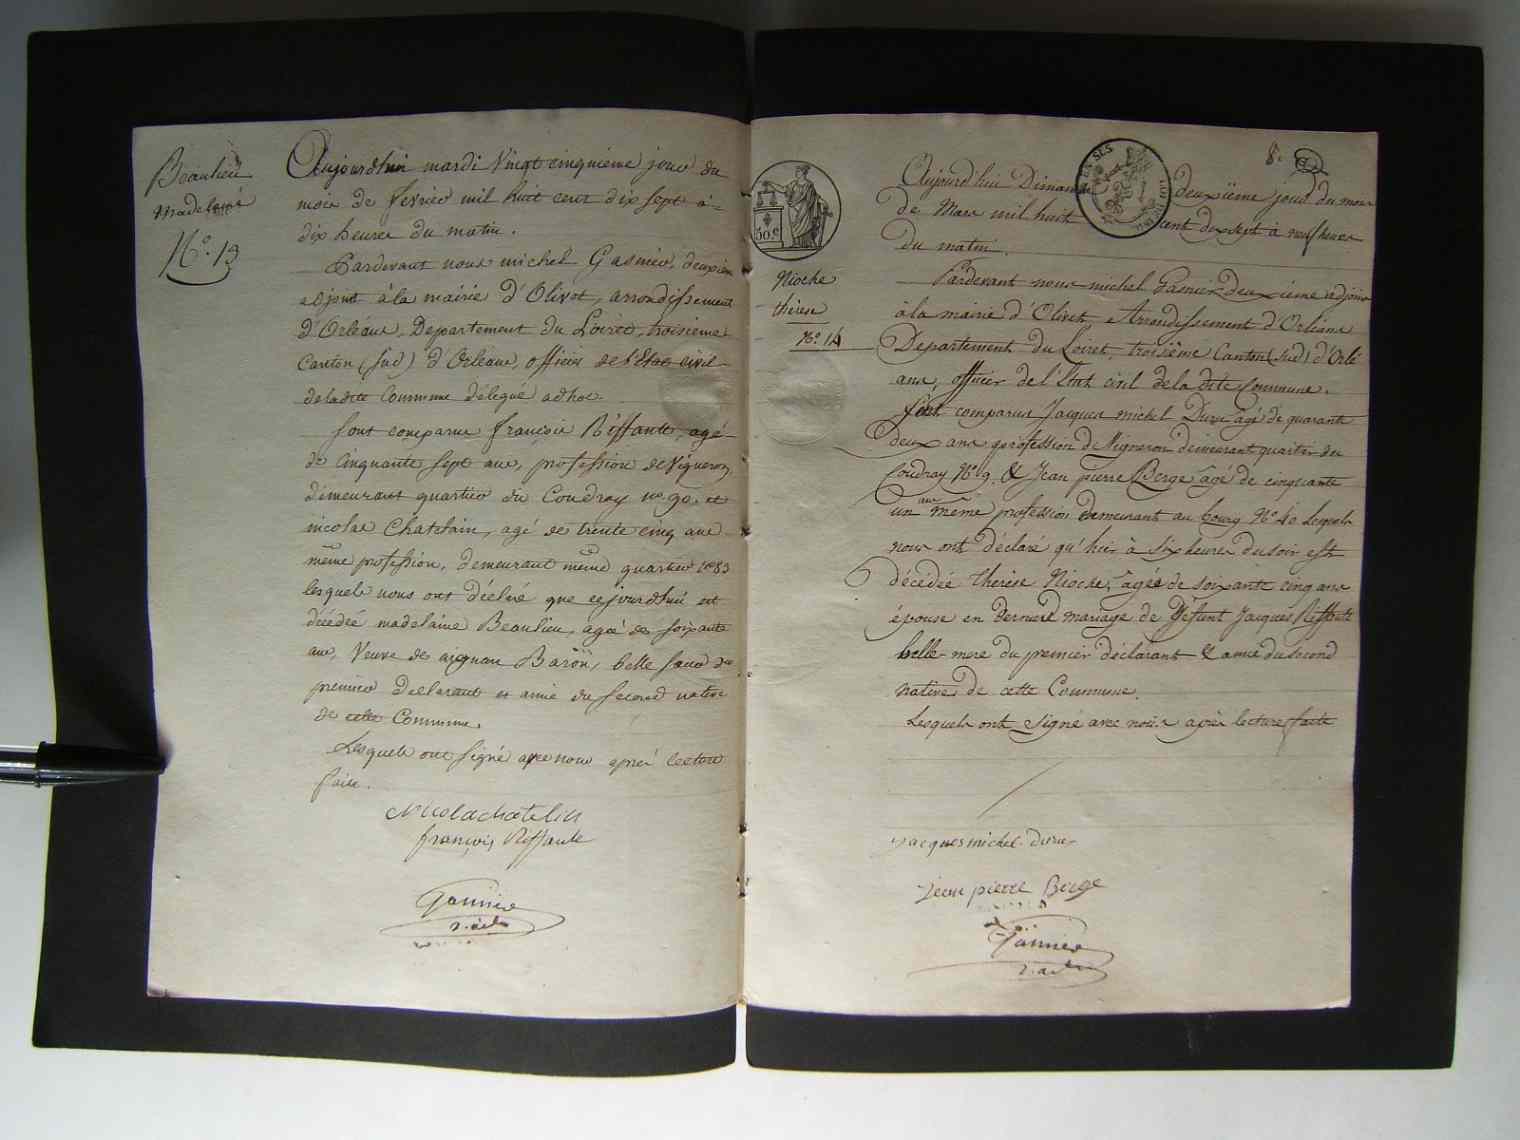 Beaulieu
Madelaine
N.o 13
Aujourd'hui mardi Vingt cinquieme jour du
mois de fevrier mil huit cent dix sept à
dix heures du matin.
Pardevant nous michel Gasnier, deuxieme
adjoint à la mairie d'Olivet, arrondissement
d'Orléans, Departement du Loiret, troisieme
Canton (sud) d'Orléans, officier de l'Etat civil
de la dite Commune délégué ad hoc.
Sont comparus françois Riffault, agé
de cinquante sept ans, profession de Vigneron,
demeurant quartier du Coudray no. 90, et
nicolas Chatelain, agé de trente cinq ans
même profession, demeurant même quartier no 83
lesquels nous ont déclaré que cejourd'hui est
décédée madelaine Beaulieu, agée de soixante
ans, Veuve de aignan Baron, belle soeur du
premier declarant et amie du second native
de cette Commune.
Lesquels ont signé avec nous après lecture
faite.
Nicola chatelin
françois Riffault
Gasnier
8.
EN SES
30 c
Nioche
therese
N.o 14
Aujourd'hui Diman deuxième jour du mois
de Mars mil huit cent dix sept à neuf heures
Du matin.
Pardevant nous michel Gasnier deuxieme adjoint
à la mairie d'Olivet, Arrondissement d'Orléans
Departement du Loiret, troisième Canton (sud) d'Orlé
ans, officier de l'Etat civil de la dite Commune.
Sont comparus Jacques michel Duru agé de quarante
deux ans profession de Vigneron demeurant quartier du
Coudray No 9. & Jean pierre Berge agé de cinquante
un ans même profession demeurant au bourg No 40 Lesquels
nous ont déclaré qu'hier à six heures du soir est
décedée therèse Nioche, agée de soixante cinq ans
épouse en derniere mariage de défunt Jacques Riffault
belle-mere du premier déclarant & amie du second
native de cette Commune.
Lesquels ont signé avec nous après lecture faite
Jacques michel duru
Jean pierre Berge
Gasnier